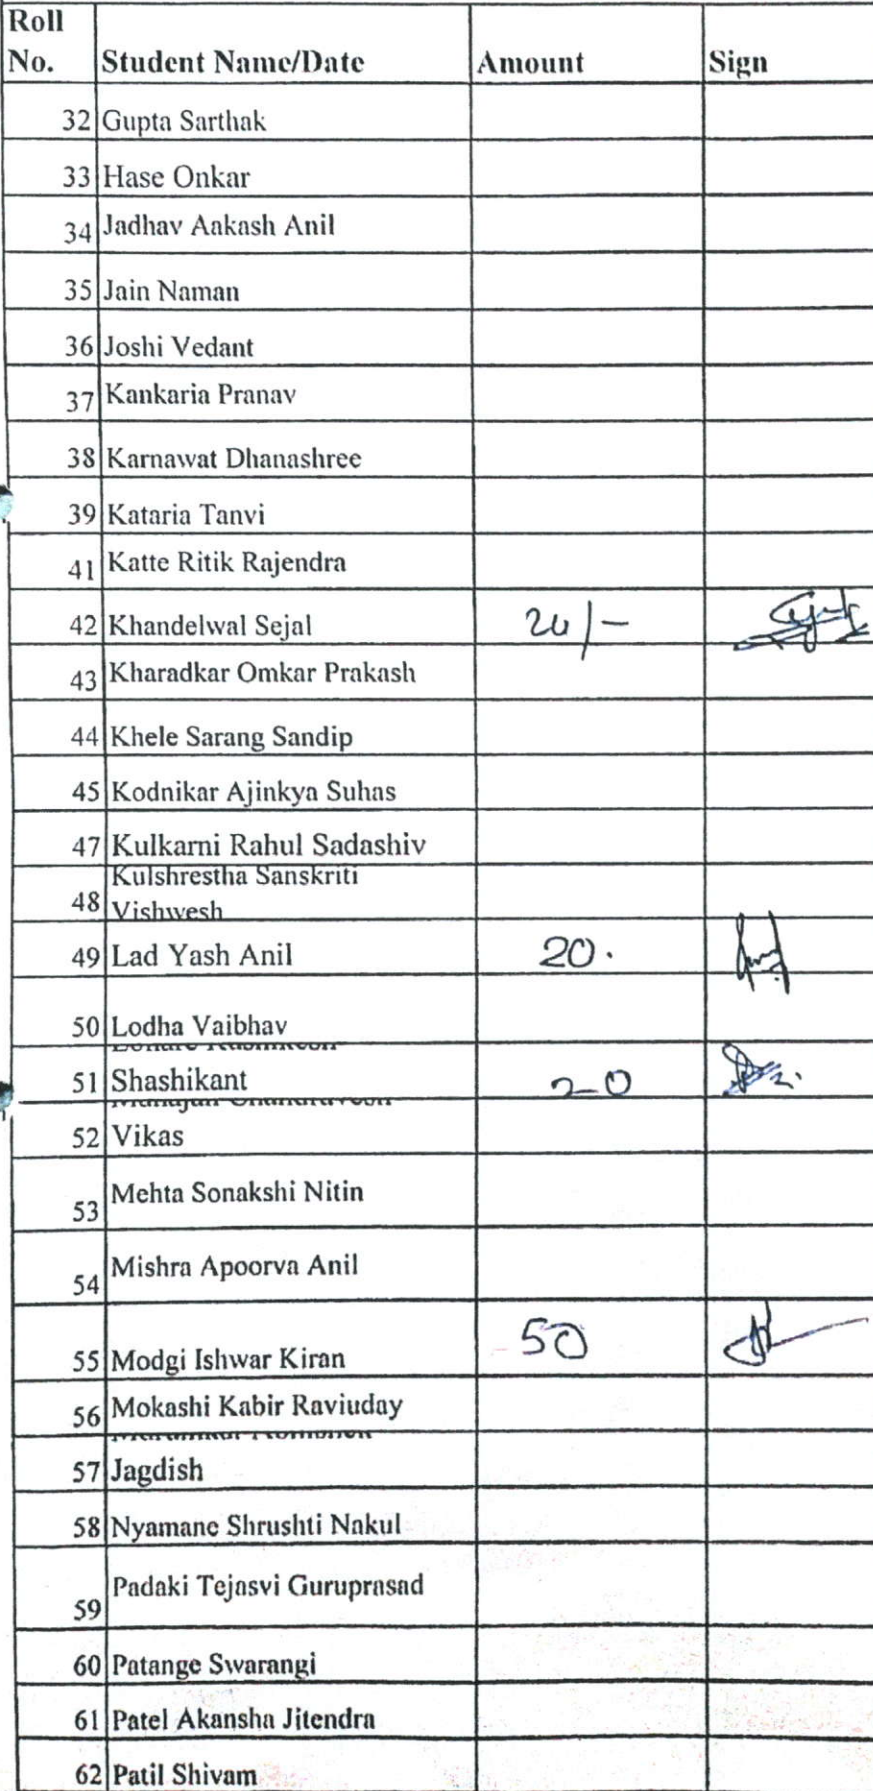 Roll
No. Student Name/Date Amount Sign
32 Gupta Sarthak
33 Hase Onkar
34 Jadhav Aakash Anil
35 Jain Naman
36 Joshi Vedant
37 Kankaria Pranav
38 Karnawat Dhanashree
39 Kataria Tanvi
41 Katte Ritik Rajendra
42 Khandelwal Sejal /-
43 Kharadkar Omkar Prakash
44 Khele Sarang Sandip
45 Kodnikar Ajinkya Suhas
47 Kulkarni Rahul Sadashiv
Kulshrestha Sanskriti
48 Vishwesh
49 Lad Yash Anil 20.
50 Lodha Vaibhav
51 Shashikant 20
52 Vikas
53 Mehta Sonakshi Nitin
54 Mishra Apoorva Anil
55 Modgi Ishwar Kiran 50
56 Mokashi Kabir Raviuday
57 Jagdish
58 Nyamane Shrushti Nakul
59 Padaki Tejasvi Guruprasad
60 Patange Swarangi
61 Patel Akansha Jitendra
62 Patil Shivam